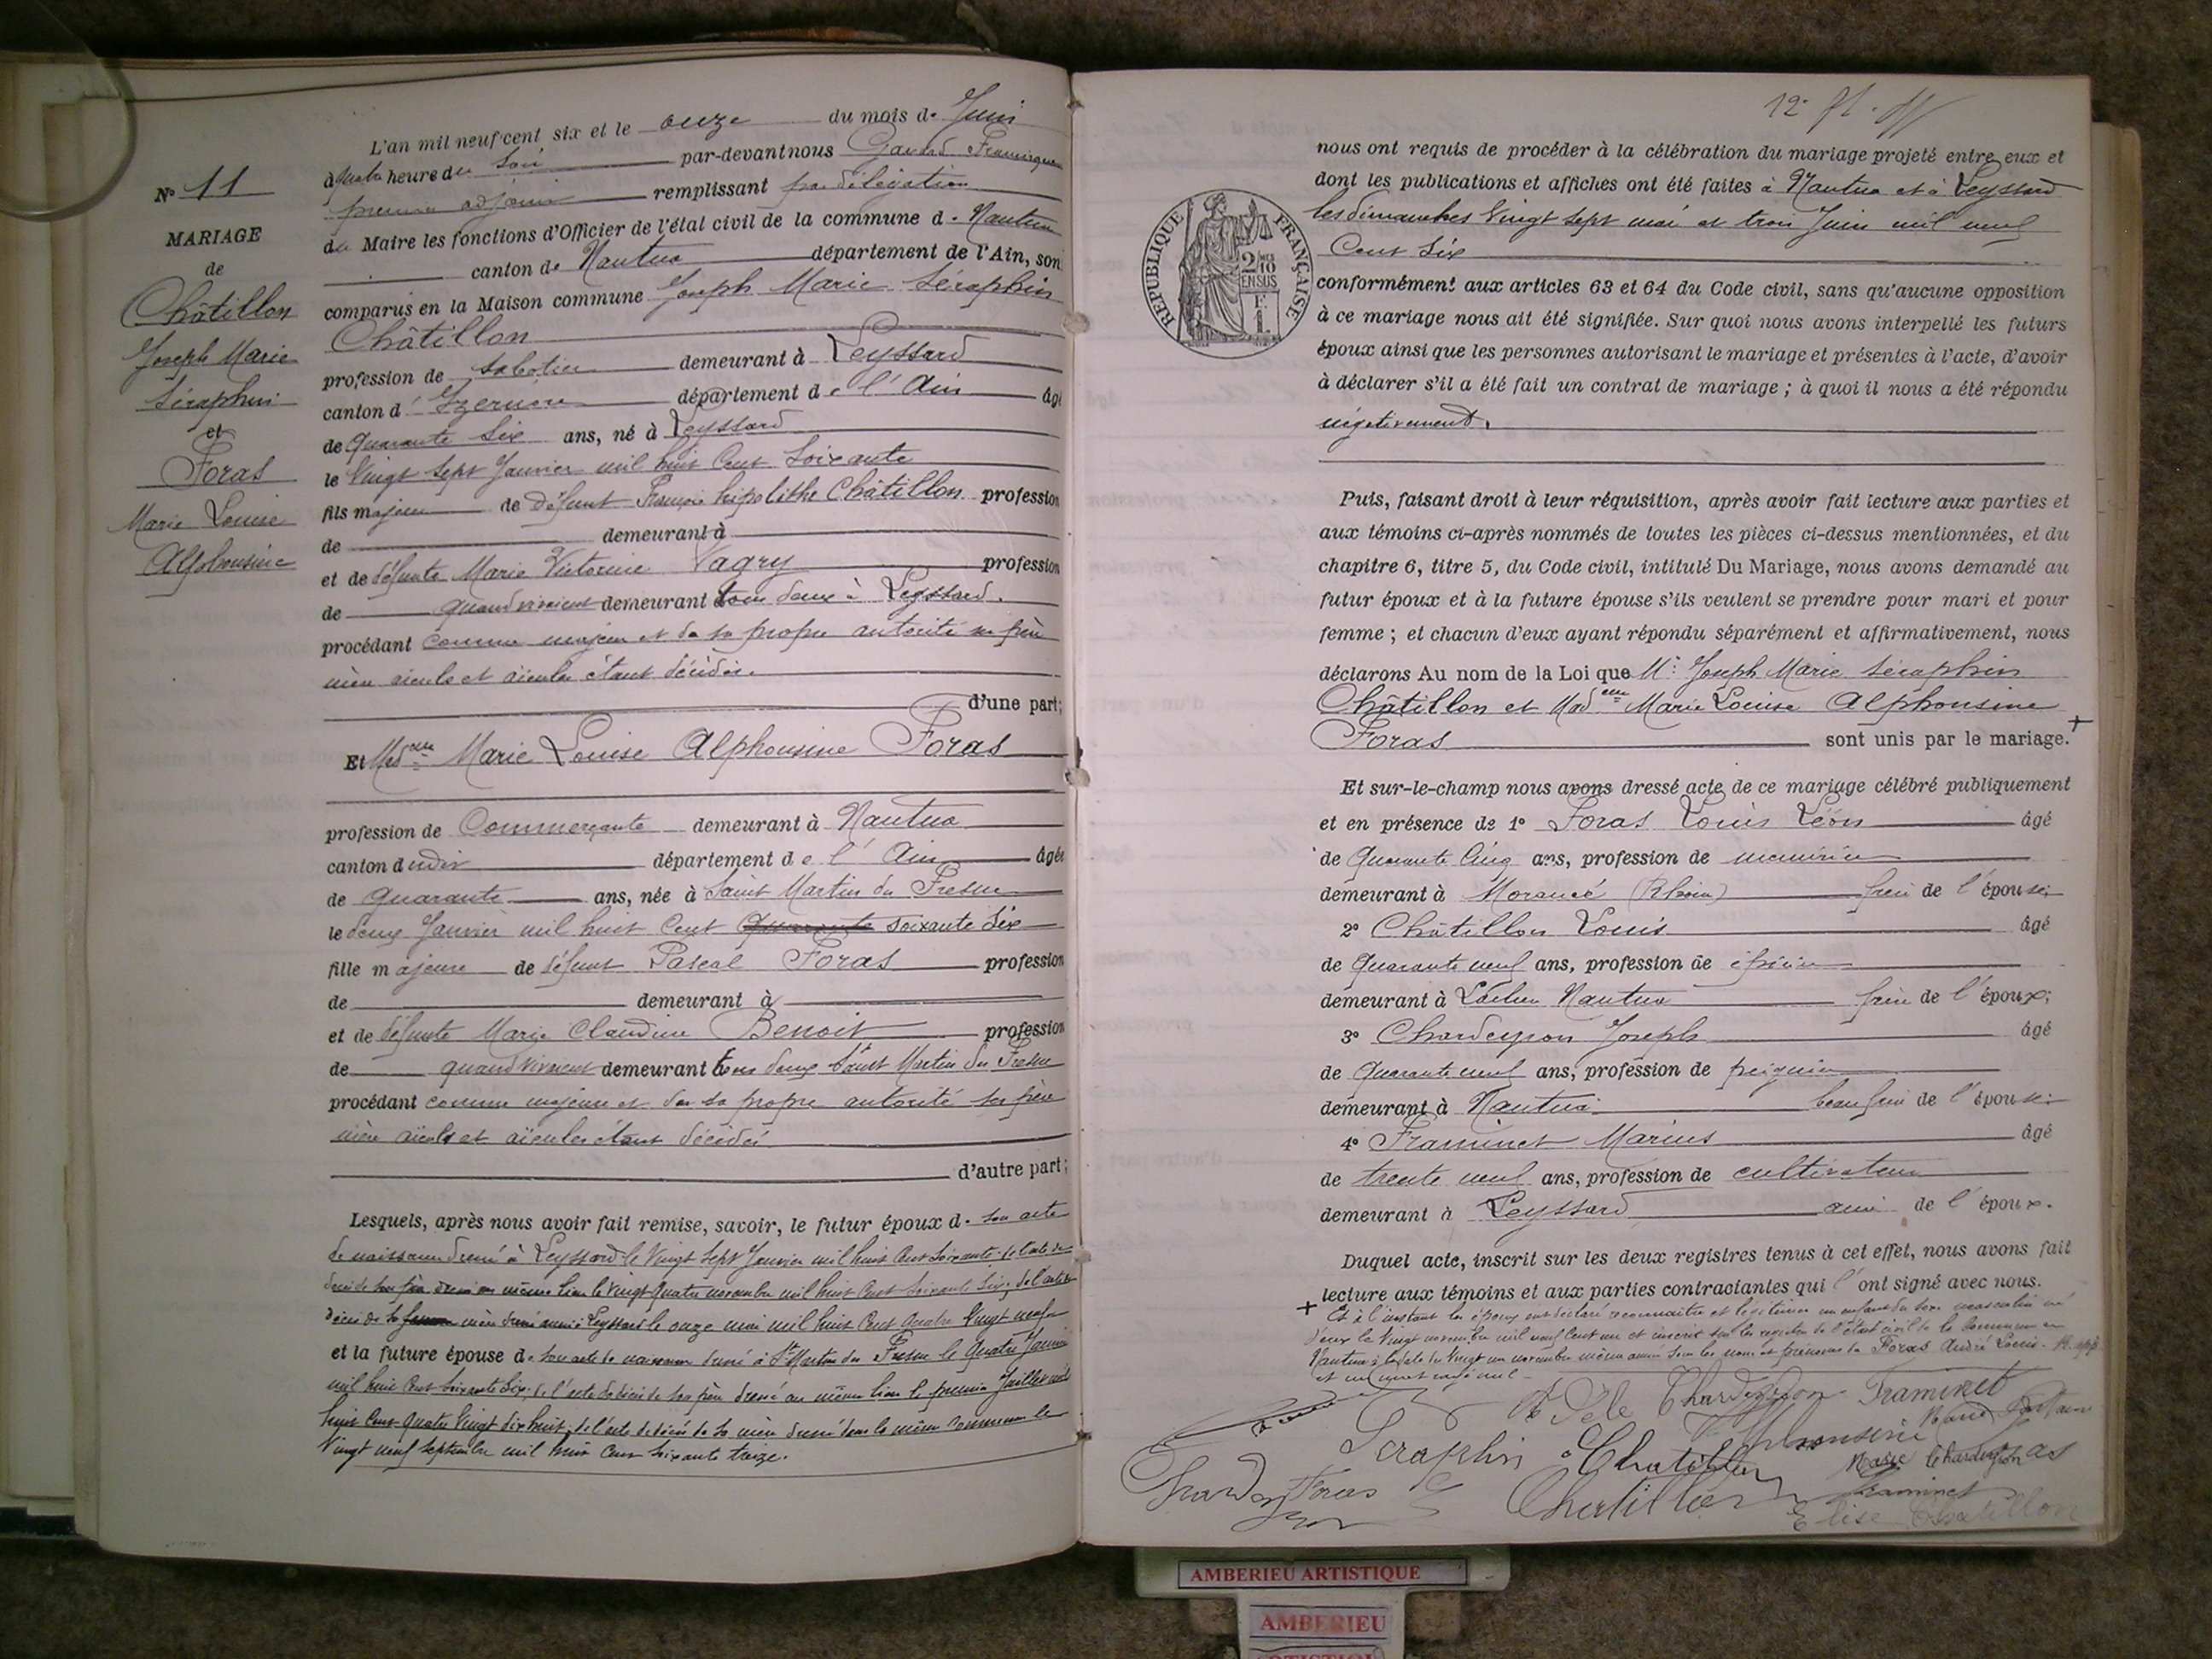 L'an mil neuf cent six et le onze du mois de Juin
à quatre heure du soir par-devant nous Gavard
premier adjoint remplissant par délégation
du Maire les fonctions d'Officier de l'état civil de la commune de Nantua
canton de Nantua département de l'Ain, son
comparus en la Maison commune Joseph Marie Séraphin
Châtillon
profession de sabotier demeurant à Leyssard
canton d'Izernore département de l'Ain âgé
de quarante six ans, né à Leyssard
le vingt sept Janvier mil huit cent soixante
fils majeur de défunt François hipolithe Châtillon profession
de demeurant à
et de défunte Marie Victorine Vagry profession
de quand vivaient demeurant tous deux à Leyssard.
procédant comme majeur et de sa propre autorité ses père
mère aïeuls et aïeules étant décédés.
d'une part;
Et Mad elle Marie Louise Alphonsine Foras
profession de Commerçante demeurant à Nantua
canton dudit département de l'Ain âgée
de quarante ans, née à Saint Martin du Fresne
le deux Janvier mil huit cent quarante soixante six
fille majeure de défunt Pascal Foras profession
de demeurant à
et de défunte Marie Claudine Benoit profession
de quand vivaient demeurant tous deux Saint Martin du Fresne
procédant comme majeure et de sa propre autorité ses père
mère aïeuls et aïeules étant décédés
d'autre part;
Lesquels, après nous avoir fait remise, savoir, le futur époux de son acte
de naissance dressé à Leyssard le vingt sept Janvier mil huit cent soixante; de l'acte de
décès de son père dressé au même lieu le vingt quatre novembre mil huit cent soixante six; de l'acte de
décès de sa femme mère dressé aussi à Leyssard le onze mai mil huit cent quatre vingt neuf
et la future épouse de son acte de naissance dressé à St Martin du Fresne le quatre Janvier
mil huit cent soixante six; de l'acte de décès de son père dressé au même lieu le premier Juillet mil
huit cent quatre vingt dix huit; de l'acte de décès de sa mère dressé dans la même commune le
vingt neuf septembre mil huit cent soixante treize.
N° 11
MARIAGE
de
Châtillon
Joseph Marie
Séraphin
et
Foras
Marie Louise
Alphonsine
nous ont requis de procéder à la célébration du mariage projeté entre eux et
dont les publications et affiches ont été faites à Nantua et à Leyssard
les dimanches vingt sept mai et trois Juin mil neuf
Cent six
REPUBLIQUE FRANÇAISE
2/10
EN SUS
F
1
conformément aux articles 63 et 64 du Code civil, sans qu'aucune opposition
à ce mariage nous ait été signifiée. Sur quoi nous avons interpellé les futurs
époux ainsi que les personnes autorisant le mariage et présentes à l'acte, d'avoir
à déclarer s'il a été fait un contrat de mariage ; à quoi il nous a été répondu
négativement.
Puis, faisant droit à leur réquisition, après avoir fait lecture aux parties et
aux témoins ci-après nommés de toutes les pièces ci-dessus mentionnées, et du
chapitre 6, titre 5, du Code civil, intitulé Du Mariage, nous avons demandé au
futur époux et à la future épouse s'ils veulent se prendre pour mari et pour
femme ; et chacun d'eux ayant répondu séparément et affirmativement, nous
déclarons Au nom de la Loi que Mr Joseph Marie Séraphin
Châtillon et Mad elle Marie Louise Alphonsine
Foras sont unis par le mariage. +
Et sur-le-champ nous avons dressé acte de ce mariage célébré publiquement
et en présence de 1° Foras Louis Léon âgé
de quarante cinq ans, profession de menuisier
demeurant à Morancé (Rhône) frère de l'épouse;
2° Châtillon Louis âgé
de quarante neuf ans, profession de épicier
demeurant à Nantua frère de l'époux;
3° Chardeyron Joseph âgé
de quarante neuf ans, profession de peignier
demeurant à Nantua beau frère de l'épouse;
4° Framinet Marius âgé
de trente neuf ans, profession de cultivateur
demeurant à Leyssard ami de l'époux.
Duquel acte, inscrit sur les deux registres tenus à cet effet, nous avons fait
lecture aux témoins et aux parties contractantes qui l'ont signé avec nous.
+ Et à l'instant les époux ont déclaré reconnaître et légitimer un enfant du sexe masculin né
d'eux le vingt novembre mil neuf cent un et inscrit sur les registres de l'état civil de la commune de
Nantua à la date du vingt un novembre même année sous les nom et prénoms de Foras André Louis.
et un mot rayé nul
Chardeyron Framinet
Séraphin Chatillon Alphonsine Foras
Marie Chardeyron
Foras Chatillon Framinet
Elise Chatillon
AMBERIEU ARTISTIQUE
AMBERIEU
ARTISTIQUE